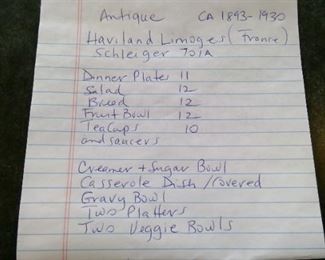 Antique CA 1893-1930
Haviland Limoges (France)
Schleiger 701A
Dinner Plates 11
Salad 12
Bread 12
Fruit Bowl 12
Tea Cups 10
and saucers
Creamer + Sugar Bowl
Casserole Dish / Covered
Gravy Bowl
Two Platters
Two Veggie Bowls